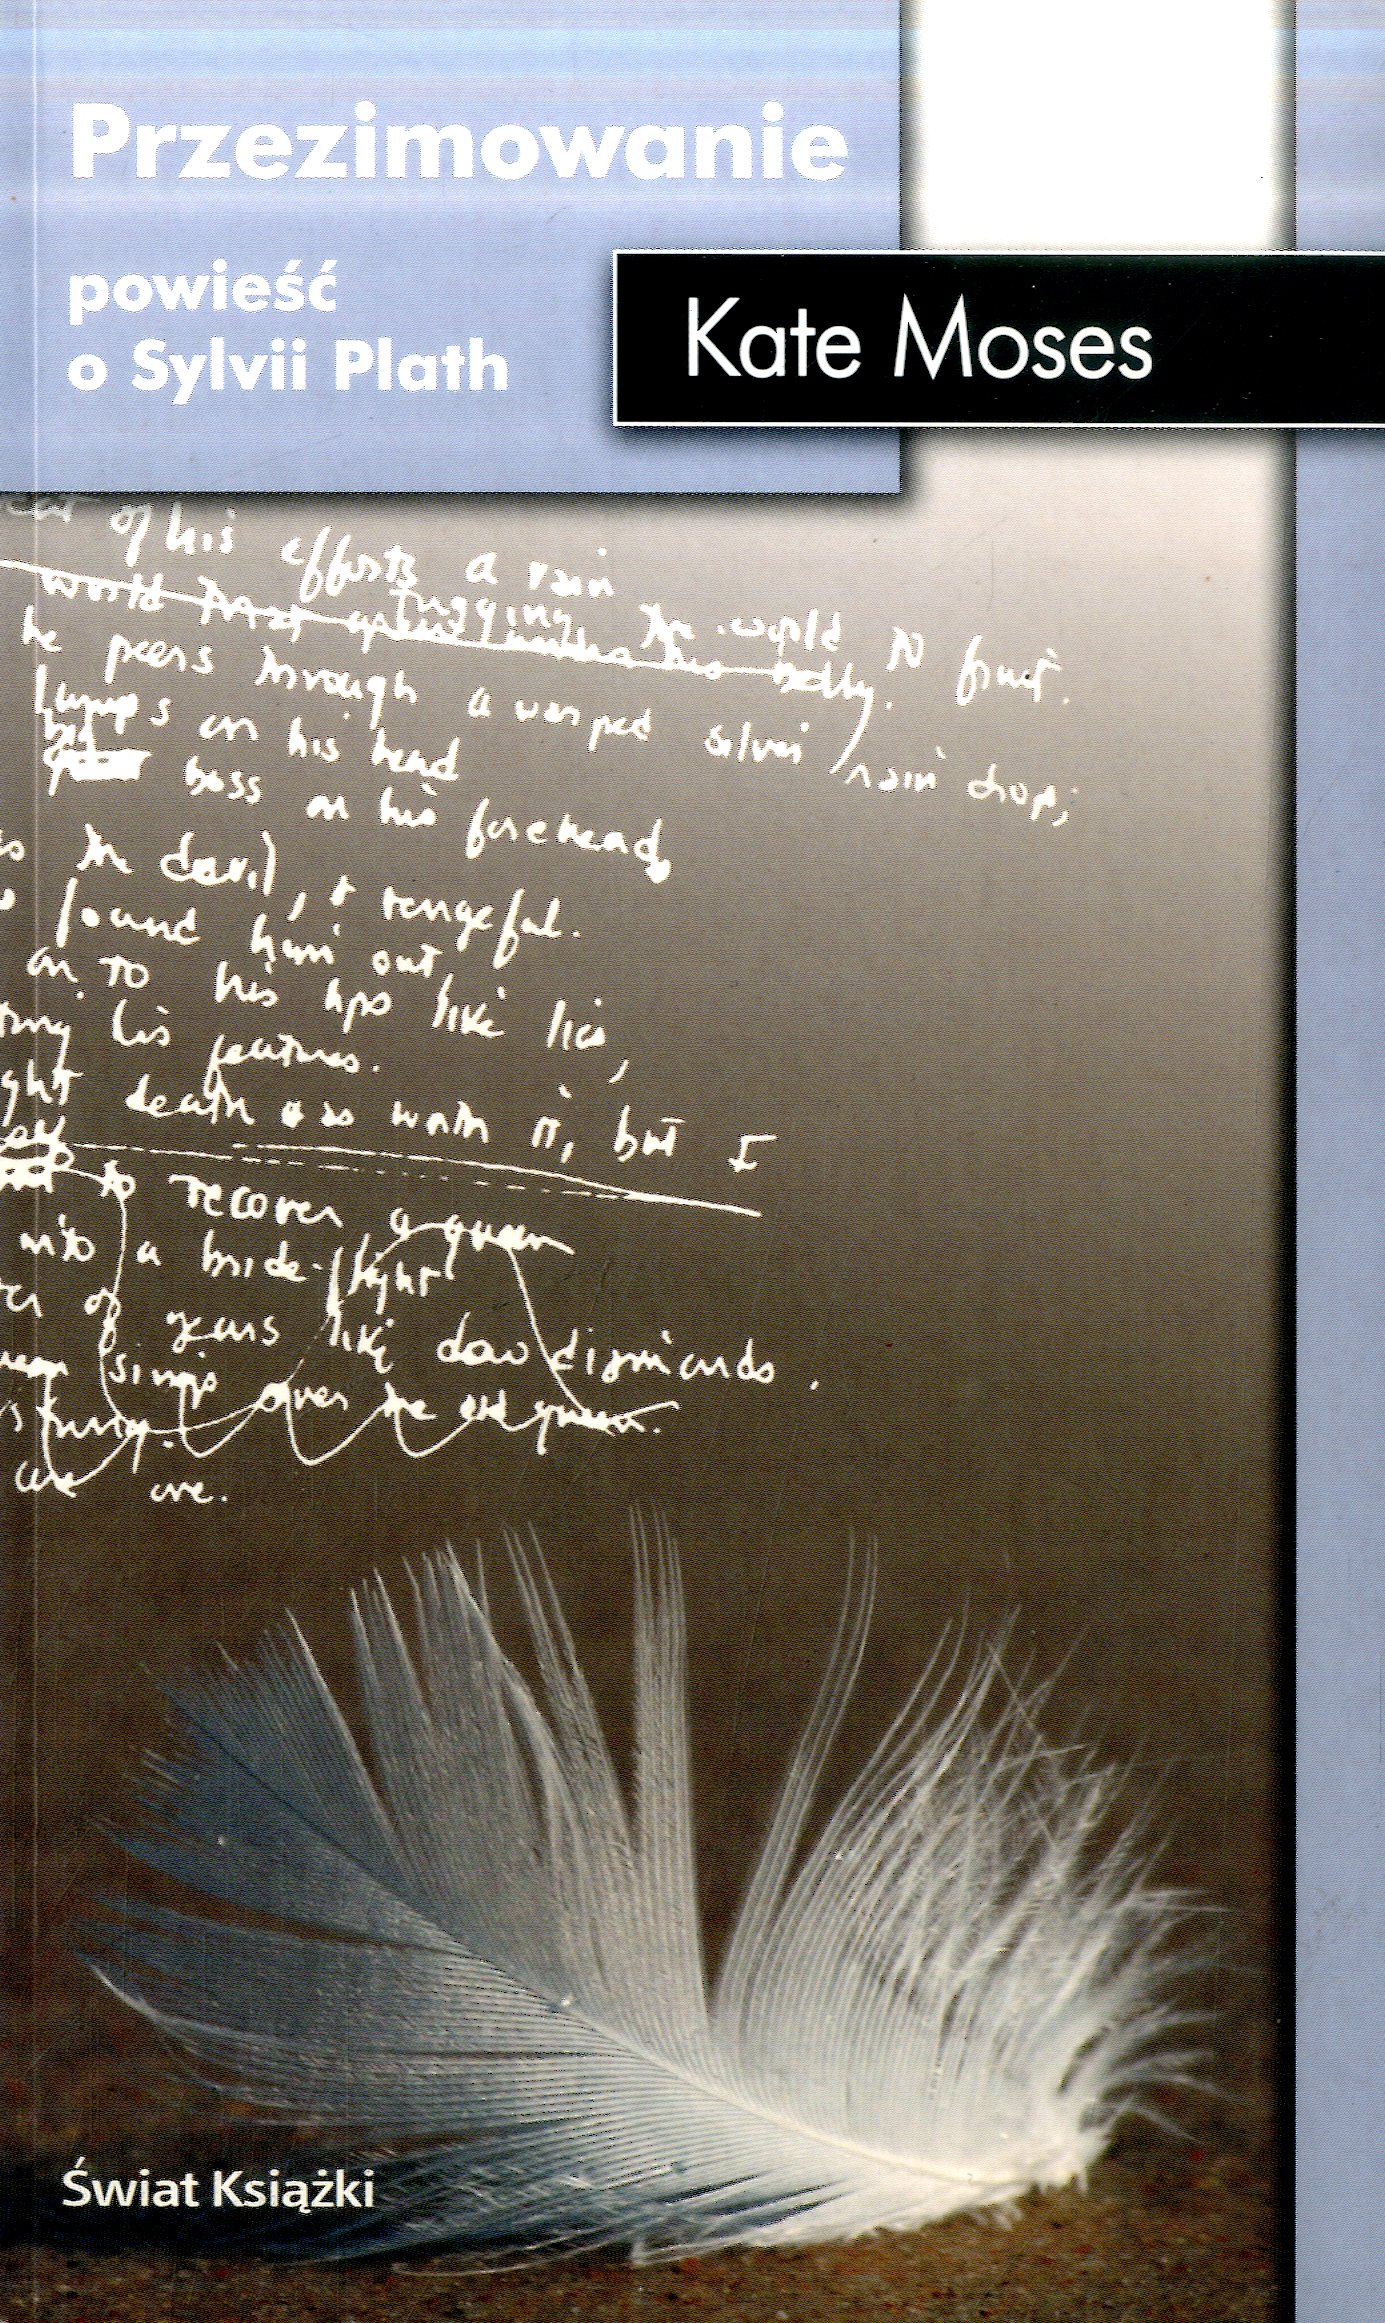 Przezimowanie
powieść
o Sylvii Plath
Kate Moses
of his efforts a rain
world tugging the world to fruit.
he peers through a warped silver rain drop;
lumps on his head
boss on his forehead
the devil, & vengeful.
found him out
on to his lips like lies,
his features.
death was worth it, but I
to recover, a queen
into a bride-flight
of years like dew diamonds.
over the old queen.
are one.
Świat Książki